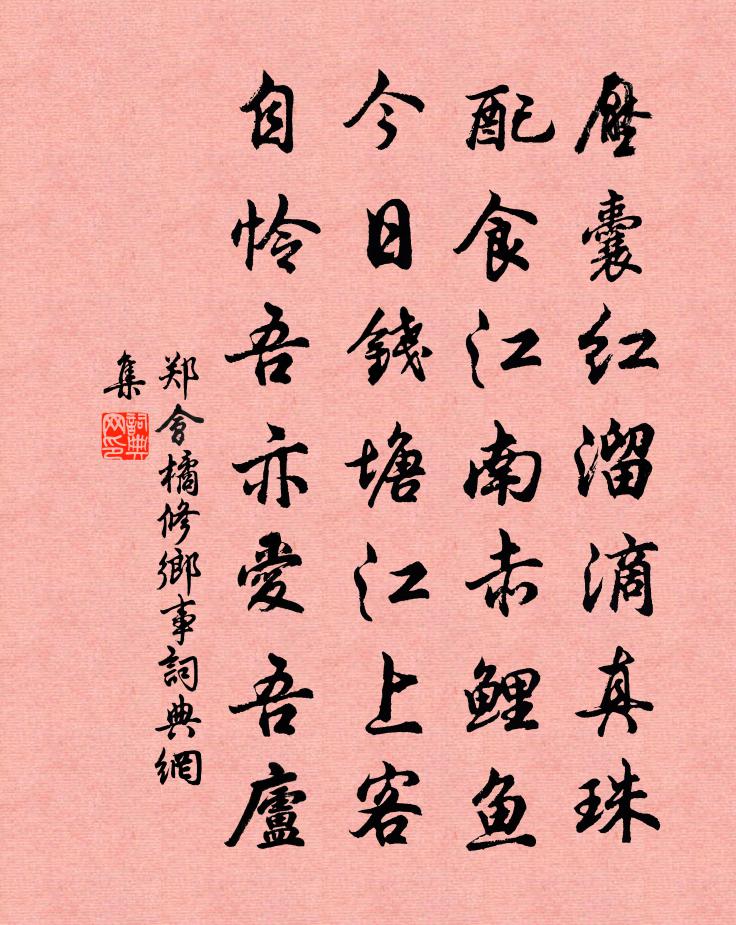 壓囊紅溜滴真珠
配食江南赤鯉魚
今日錢塘江上客
自怜吾亦愛吾廬
郑會橘修鄉事詞典網
集
詞典
网印